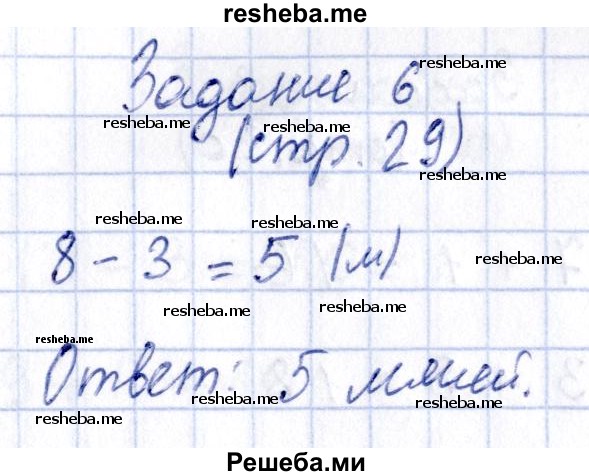 resheba.me
Задание 6
resheba.me
resheba.me resheba.me
(стр. 29)
resheba.me
resheba.me resheba.me
8 - 3 = 5 (м)
resheba.me
resheba.me resheba.me
resheba.me
Ответ: 5
resheba.me
resheba.me
Решеба.ми